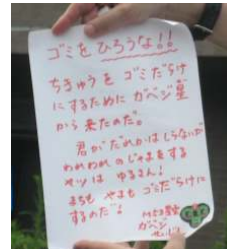 ゴミをひろうな!!
ちきゅうをゴミだらけ
にするためにガベジ星
から来たのだ。
君がだれかはしらないが
われわれのじゃまをする
ヤツはゆるさん!
まちもやまもゴミだらけに
するのだ!
ガベジ